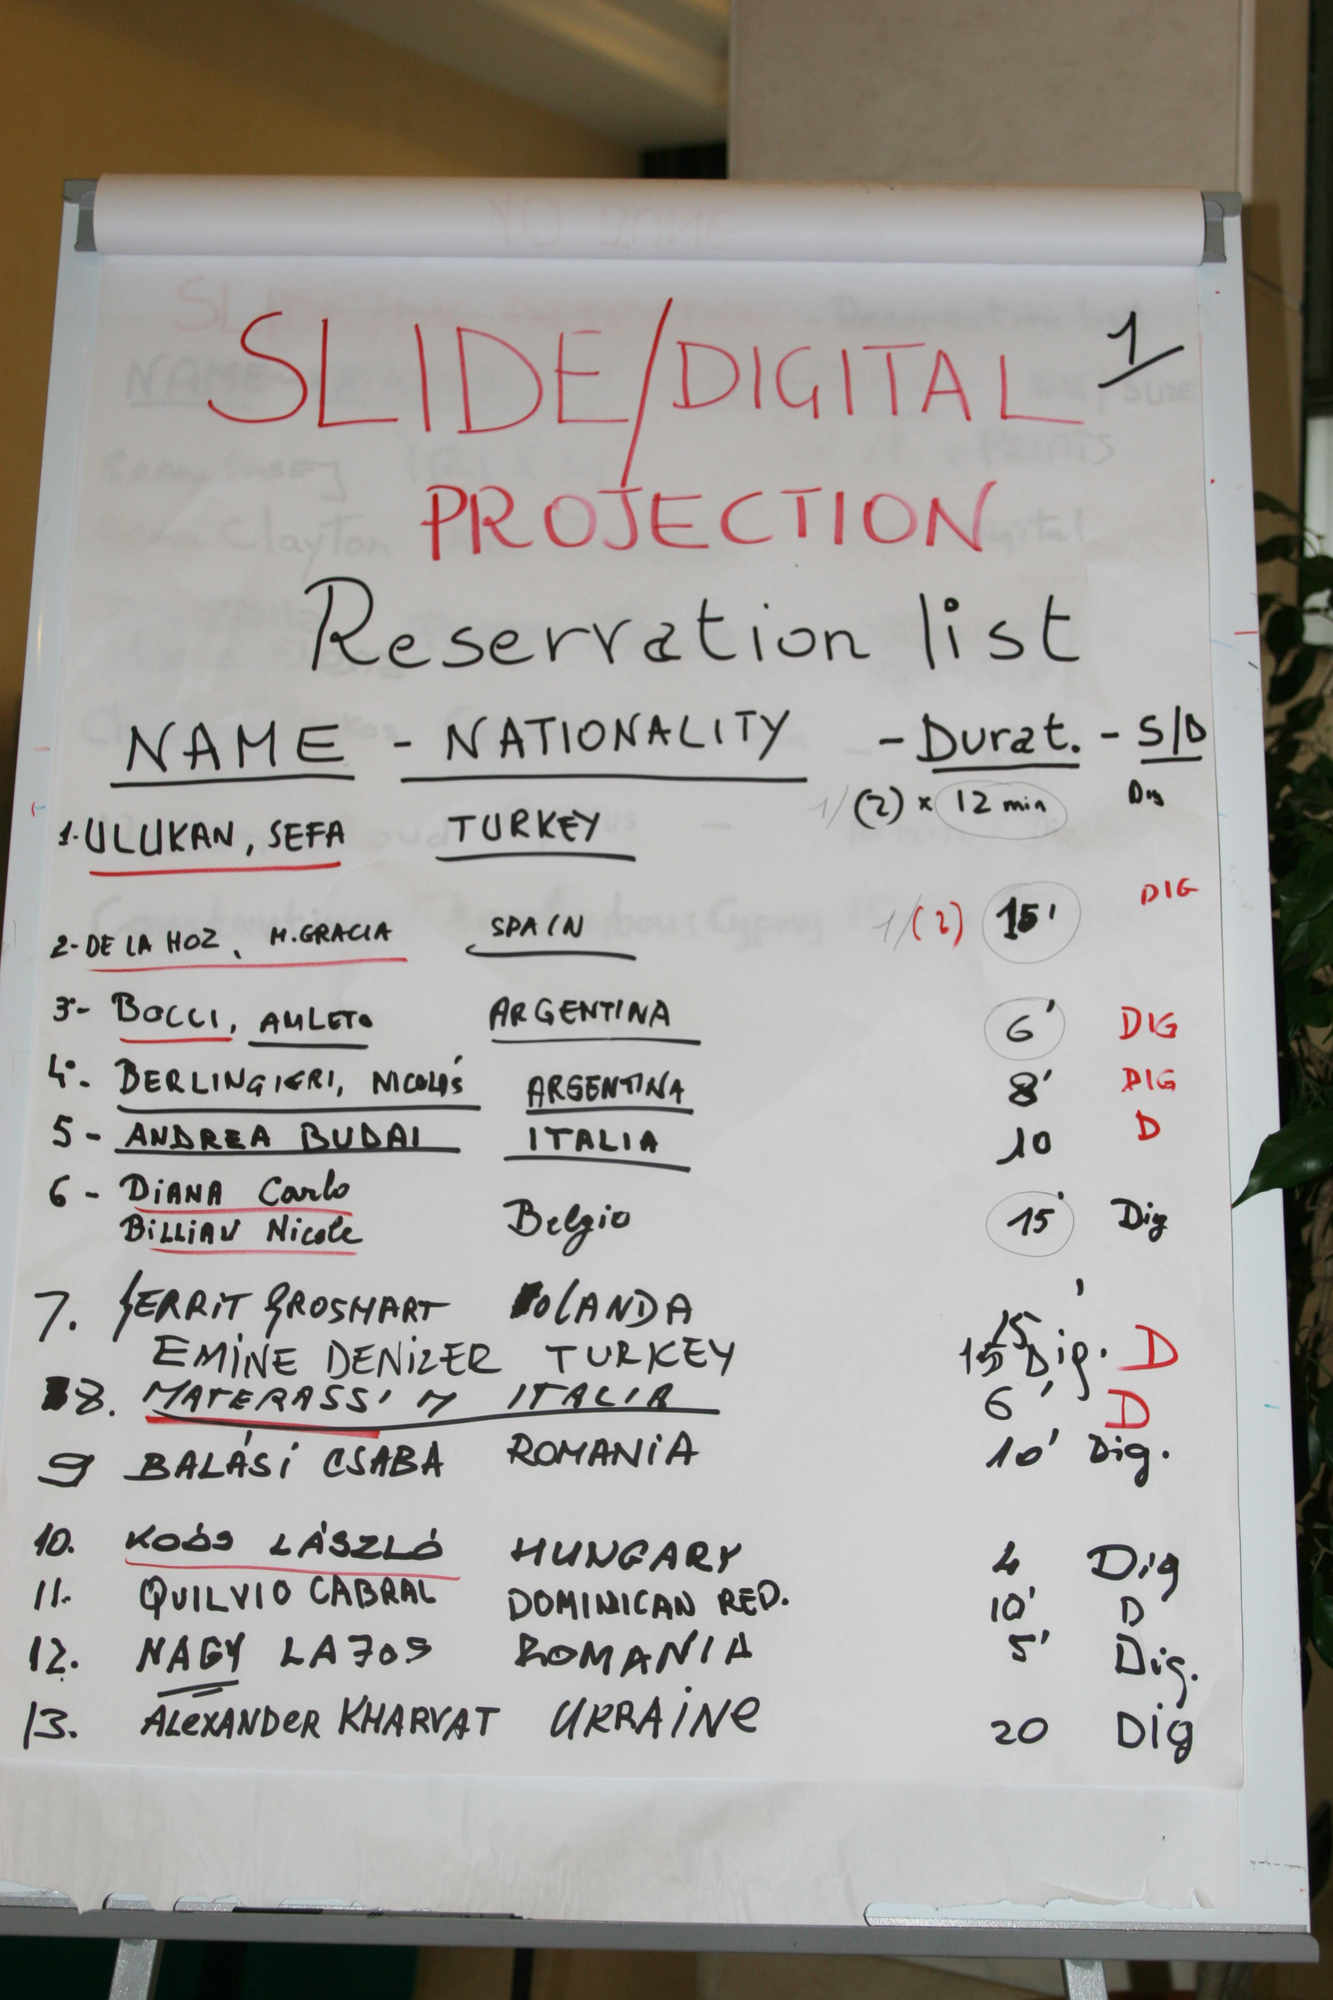 SLIDE/DIGITAL 1
PROJECTION
Reservation list
NAME - NATIONALITY - Durat. - S/D
1. ULUKAN, SEFA TURKEY 1/(2) × 12 min Dig
2- DE LA HOZ, M.GRACIA SPAIN 1/(2) 15' DIG
3- BOCCI, AMLETO ARGENTINA 6' DIG
4- BERLINGIERI, NICOLÁS ARGENTINA 8' DIG
5- ANDREA BUDAI ITALIA 10 D
6- DIANA Carlo
BILLIAU Nicole Belgio 15' Dig
7. GERRIT GROSMART OLANDA 15'
EMINE DENIZER TURKEY 15 Dig. D
8. MATERASSI M ITALIA 6' D
9 BALÁSI CSABA ROMANIA 10' Dig.
10. KOÓS LÁSZLÓ HUNGARY 4 Dig
11. QUILVIO CABRAL DOMINICAN RED. 10' D
12. NAGY LAJOS ROMANIA 5' Dig.
13. ALEXANDER KHARVAT UKRAINE 20 Dig